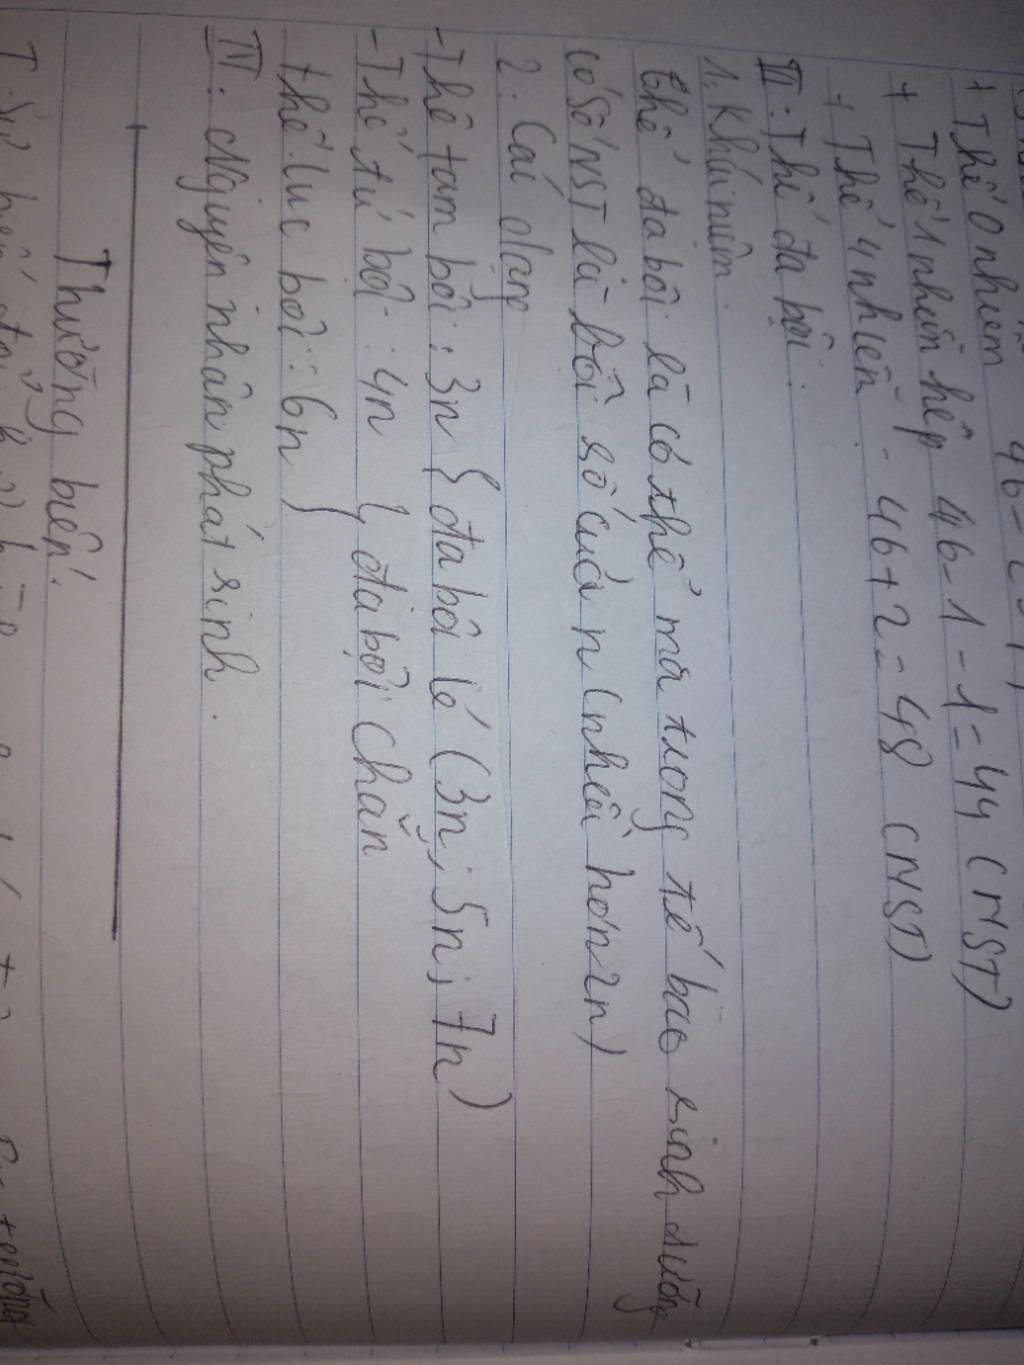 + Thể 0 nhiễm 46-2=
+ Thể 1 nhiễm kép 46-1-1=44 (NST)
+ Thể 4 nhiễm - 46+2=48 (NST)
III: Thể đa bội:
1. Khái niệm.
Thể đa bội là cơ thể mà trong tế bào sinh dưỡng
có số NST là bội số của n (nhiều hơn 2n)
2. Các dạng
- Thể tam bội: 3n { đa bội lẻ (3n; 5n; 7n)
- Thể tứ bội: 4n { đa bội chẵn
thể lục bội: 6n }
IV. Nguyên nhân phát sinh.
Thường biến.